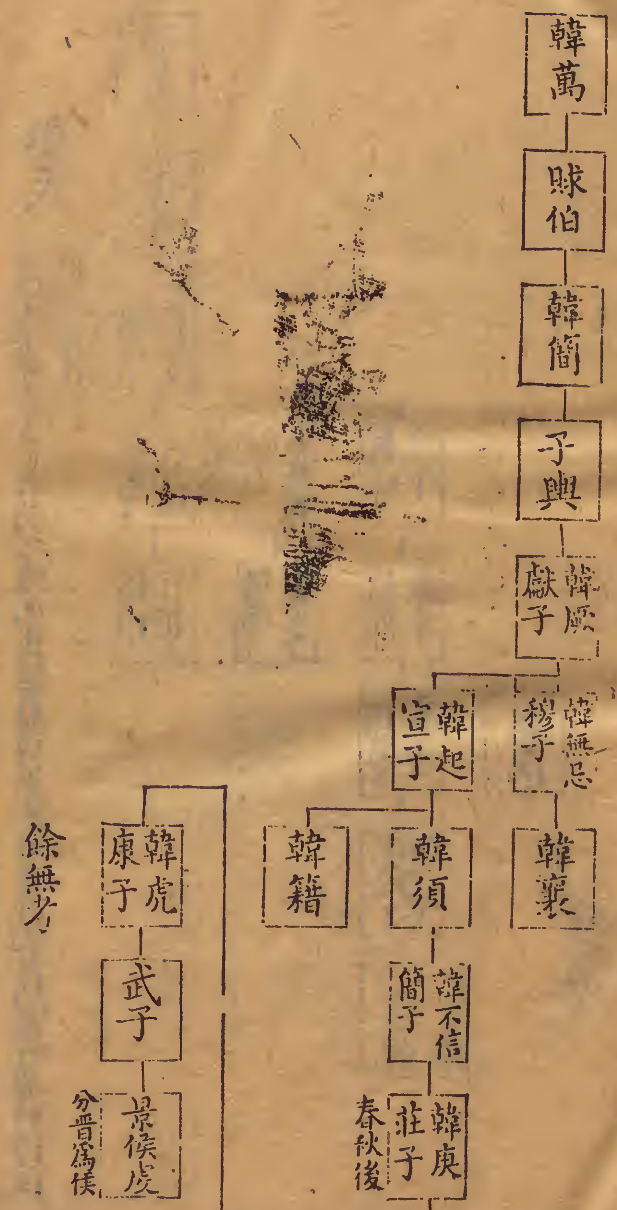 韓萬
賕伯
韓簡
子輿
韓厥
獻子
韓無忌
穆子
韓襄
韓起
宣子
韓須
韓籍
韓不信
簡子
韓庚
莊子
春秋後
韓虎
康子
武子
景侯虔
分晋為侯
餘無考